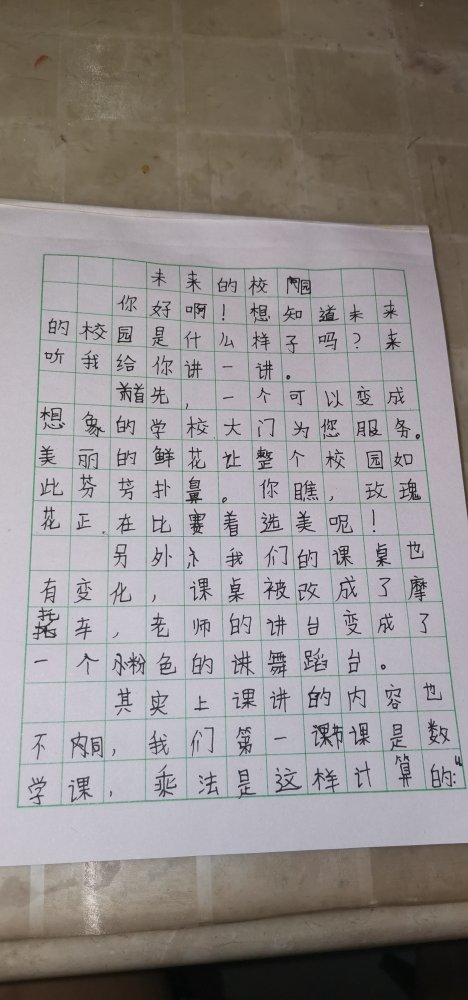 未来的校园
你好啊！想知道未来
的校园是什么样子吗？来
听我给你讲一讲。
首先，一个可以变成
想象的学校大门为您服务。
美丽的鲜花让整个校园如
此芬芳扑鼻。你瞧，玫瑰
花正在比赛着选美呢！
另外，我们的课桌也
有变化，课桌被改成了摩
托车，老师的讲台变成了
一个粉色的讲舞蹈台。
其实上课讲的内容也
不同，我们第一节课是数
学课，乘法是这样计算的：“